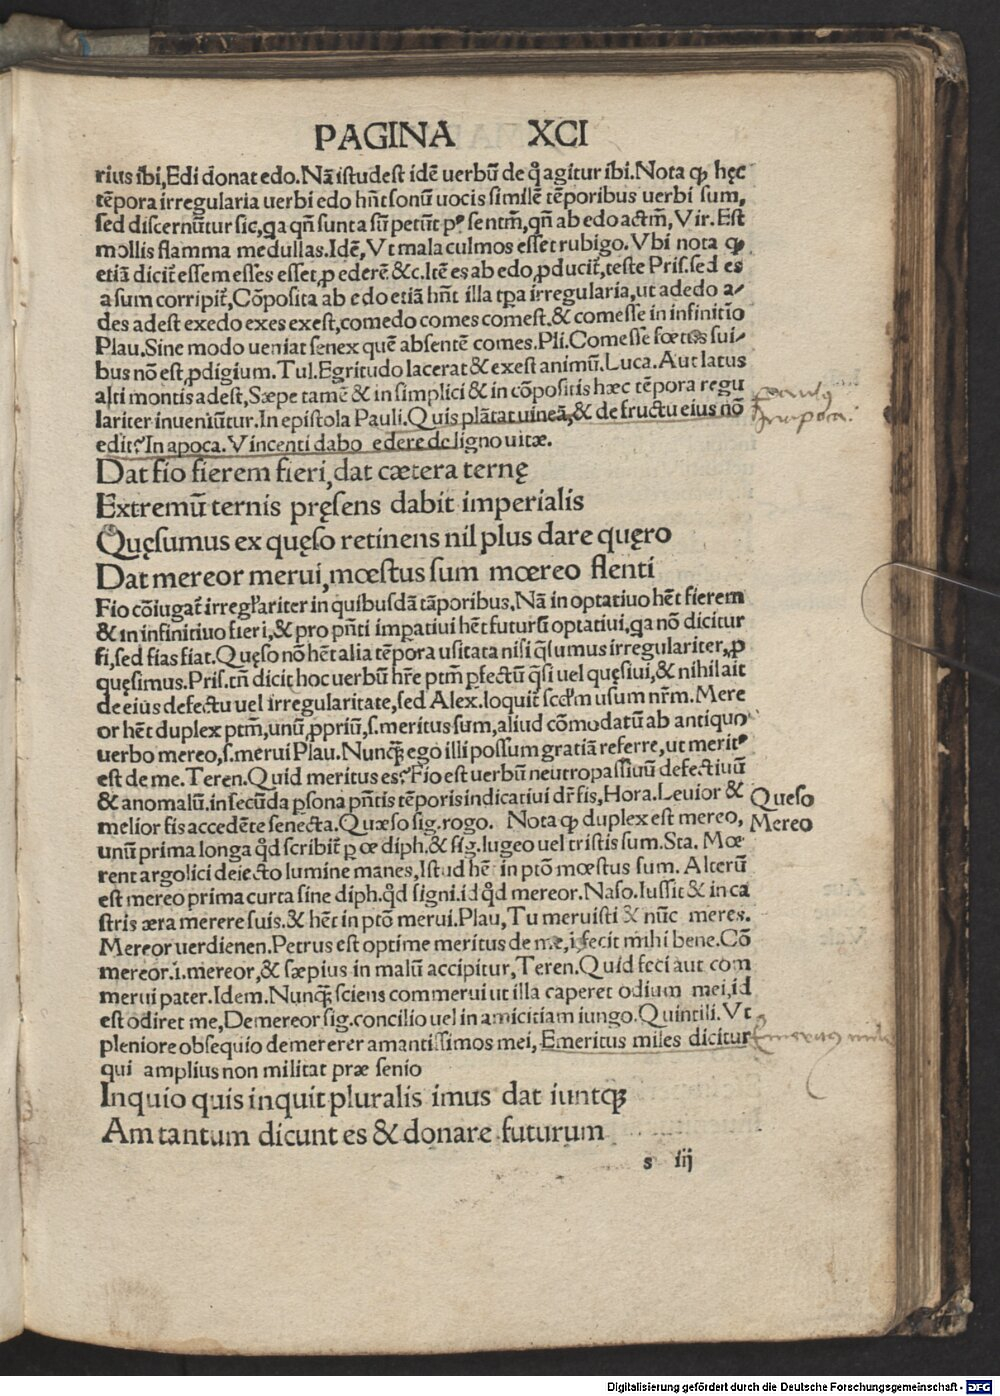 PAGINA XCI
rius ibi,Edi donat edo.Nā istudest idē uerbū de q̊ agitur ibi.Nota ꝙ hęc
tēpora irregularia uerbi edo hn̄t sonū uocis similē tēporibus uerbi sum,
sed discernūtur sic, ꝗa qn̄ sunt a sū petūt p̄sentm̄, qn̄ ab edo actm̄, Vir.Est
mollis flamma medullas.Idē, Vt mala culmos esset rubigo.Vbi nota ꝙ
etiā dicit̄ essem esses esset, ꝓ ederē &c.Itē es ab edo, ꝓducit̄, teste Pris.sed es
a sum corripit̄, Cōposita ab edo etiā hn̄t illa tp̄a irregularia, ut adedo a⸗
des adest exedo exes exest, comedo comes comest.& comesse in infinitīo
Plau.Sine modo ueniat senex quē absentē comes.Pli.Comesse fœtus sui⸗
bus nō est, ꝓdigium.Tul.Egritudo lacerat & exest animū.Luca.Aut latus
alti montis adest, Sæpe tamē & in simplici & in cōpositis hæc tēpora regu
lariter inueniūtur.In epistola Pauli.Quis plātat uineā, & de fructu eius nō
edit?In apoca.Vincenti dabo edere de ligno uitæ.
Dat fio fierem fieri, dat cætera ternę
Extremū ternis pręsens dabit imperialis
Quęsumus ex quęso retinens nil plus dare quęro
Dat mereor merui, mœstus sum mœreo flenti
Fio cōiugat̄ irregl̄ariter in quibusdā tāporibus.Nā in optatiuo hēt fierem
& in infinitiuo fieri, & pro pn̄ti impatiui hēt futurū optatiui, ꝗa nō dicitur
fi, sed fias fiat.Quęso nō hēt alia tēpora usitata nisi q̄sumus irregulariter, ꝓ
quęsimus.Pris.tn̄ dicit hoc uerbū hr̄e ptm̄ ꝑfectū q̄si uel quęsiui, & nihil ait
de eius defectu uel irregularitate, sed Alex.loquit̄ sccd̄m usum nr̄m.Mere
or hēt duplex ptm̄, unū ꝓpriū, s.meritus sum, aliud cōmodatū ab antiquo
uerbo mereo, s.merui Plau.Nunq̄ꝫ ego illi possum gratiā referre, ut meritꝰ
est de me.Teren.Quid meritus es?Fio est uerbū neutropassiuū defectiuū
& anomalū.in secūda ꝑsona pn̄tis tēporis indicatiui dr̄ fis, Hora.Leuior &
melior fis accedēte senecta.Quæso sig.rogo. Nota ꝙ duplex est mereo,
unū prima longa q̊d scribit̄ ꝑ œ diph.& sig.lugeo uel tristis sum.Sta. Mœ
rent argolici deiecto lumine manes, Istud hēt in ptō mœstus sum. Alterū
est mereo prima curta sine diph.q̊d signi.id q̊d mereor.Naso.Iussit & in ca
stris æra merere suis.& hēt in ptō merui.Plau, Tu meruisti & nūc meres.
Mereor uerdienen.Petrus est optime meritus de me, i.fecit mihi bene.Cō
mereor.i.mereor, & sæpius in malū accipitur, Teren.Quid feci aut com
merui pater.Idem.Nunq̄ꝫ sciens commerui ut illa caperet odium mei, id
est odiret me, Demereor sig.concilio uel in amicitiam iungo.Quintili.Vt
pleniore obsequio demererer amantissimos mei, Emeritus miles dicitur
qui amplius non militat præ senio
Inquio quis inquit pluralis imus dat iuntqꝫ
Am tantum dicunt es & donare futurum
s iij
paulꝰ
In apoca.
Queso
Mereo
Emeritꝰ mile
Digitalisierung gefördert durch die Deutsche Forschungsgemeinschaft - DFG